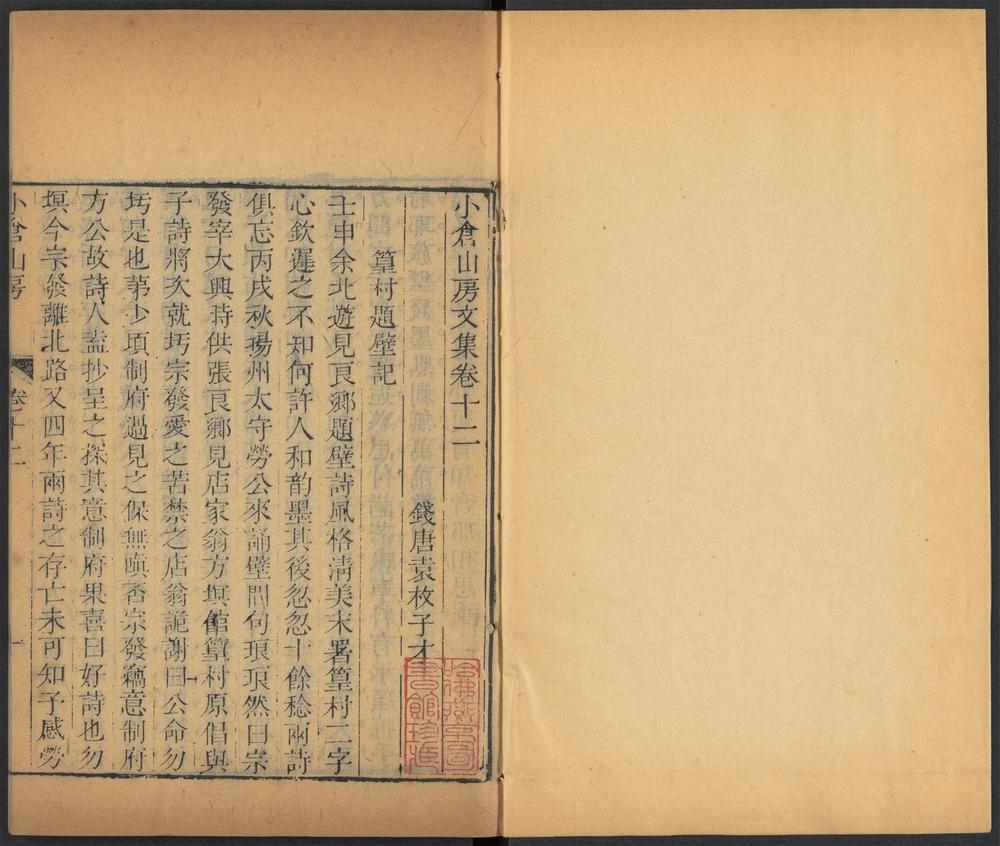 小倉山房文集卷十二
錢唐袁枚子才
篁村題壁記
壬申余北遊見良鄉題壁詩風格清美末署篁村二字
心欽遲之不知何許人和韵墨其後忽忽十餘稔兩詩
俱忘丙戌秋揚州太守勞公來誦壁間句琅琅然曰宗
發宰大興時供張良鄉見店家翁方墁館篁村原倡與
子詩將次就圬宗發愛之苦禁之店翁詭謝曰公命勿
圬是也第少頃制府過見之保無嗔否宗發竊意制府
方公故詩人盍抄呈之探其意制府果喜曰好詩也勿
墁今宗發離北路又四年兩詩之存亡未可知予感勞
小倉山房
卷十二
一
哈佛燕京圖
書館珍藏